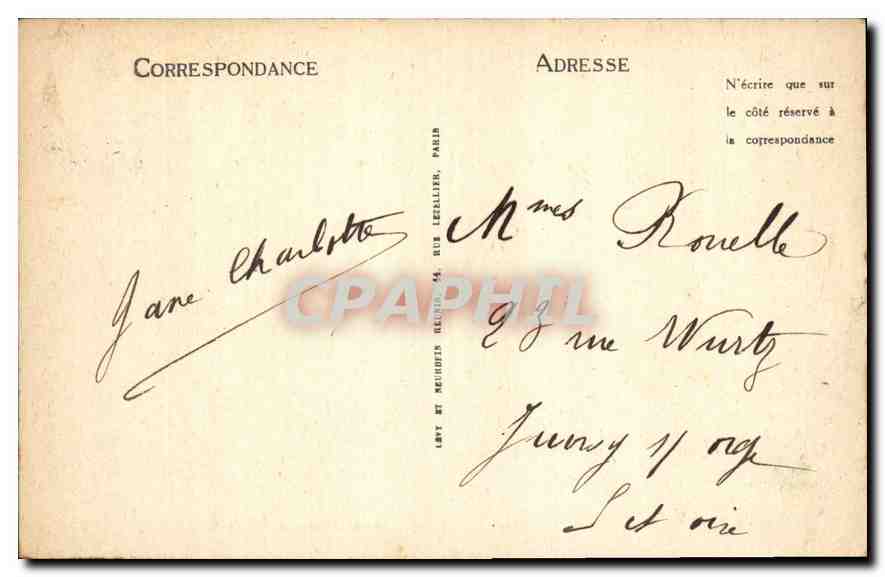 CORRESPONDANCE
ADRESSE
N'écrire que sur
le côté réservé à
la correspondance
LÉVY ET NEURDEIN RÉUNIS, 44, RUE LETELLIER, PARIS
Jane Charlotte
Mmes Rouelle
23 rue Wurtz
Juvisy s/ orge
S et oise
CPAPHIL